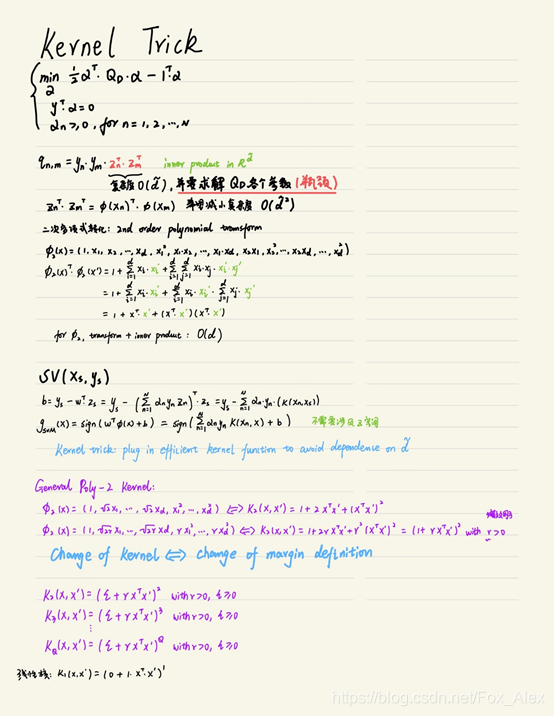 Kernel Trick
min ½ αᵀ · Q_D · α − 1ᵀ · α
α
yᵀ · α = 0
αₙ ≥ 0, for n = 1, 2, ⋯, N
qₙ,ₘ = yₙ · yₘ · zₙᵀ · zₘᵀ inner product in R^d̃
复杂度 O(d̃), 并需求解 Q_D 各个参数 (瓶颈)
zₙᵀ · zₘᵀ = φ(xₙ)ᵀ · φ(xₘ) 复杂度 O(d̃²)
二次多项式转化: 2nd order polynomial transform
φ₂(x) = (1, x₁, x₂, ⋯, x_d, x₁², x₁·x₂, ⋯, x₁·x_d, x₂x₁, x₂², ⋯ x₂x_d, ⋯, x_d²)
φ₂(x)ᵀ · φ₂(x') = 1 + Σᵢ₌₁ᵈ xᵢ·xᵢ' + Σᵢ₌₁ᵈ Σⱼ₌₁ᵈ xᵢ·xⱼ·xᵢ'·xⱼ'
= 1 + Σᵢ₌₁ᵈ xᵢ·xᵢ' + Σᵢ₌₁ᵈ xᵢ·xᵢ' · Σⱼ₌₁ᵈ xⱼ·xⱼ'
= 1 + xᵀ·x' + (xᵀ·x')(xᵀ·x')
for φ₂, transform + inner product: O(d)
SV(xₛ, yₛ)
b = yₛ − wᵀzₛ = yₛ − (Σₙ₌₁ᴺ αₙyₙzₙ)ᵀ · zₛ = yₛ − Σₙ₌₁ᴺ αₙ·yₙ·(K(xₙ,xₛ))
g_SVM(x) = sign(wᵀφ(x)+b) = sign(Σₙ₌₁ᴺ αₙyₙ K(xₙ,x) + b) 不需要涉及Z空间
Kernel trick: plug in efficient kernel function to avoid dependence on d̃
General Poly-2 Kernel:
φ₂(x) = (1, √2x₁, ⋯, √2x_d, x₁², ⋯, x_d²) ⟺ K₂(x,x') = 1 + 2xᵀx' + (xᵀx')²
φ₂(x) = (1, √2γx₁, ⋯, √2γx_d, γx₁², ⋯, γx_d²) ⟺ K₂(x,x') = 1+2γxᵀx'+γ²(xᵀx')² = (1+γxᵀx')² with γ>0
Change of Kernel ⟺ change of margin definition
K₂(x,x') = (ξ+γxᵀx')² with γ>0, ξ≥0
K₃(x,x') = (ξ+γxᵀx')³ with γ>0, ξ≥0
⋮
K_Q(x,x') = (ξ+γxᵀx')^Q with γ>0, ξ≥0
线性核: K₁(x,x') = (0+1·xᵀ·x')¹
https://blog.csdn.net/Fox_Alex